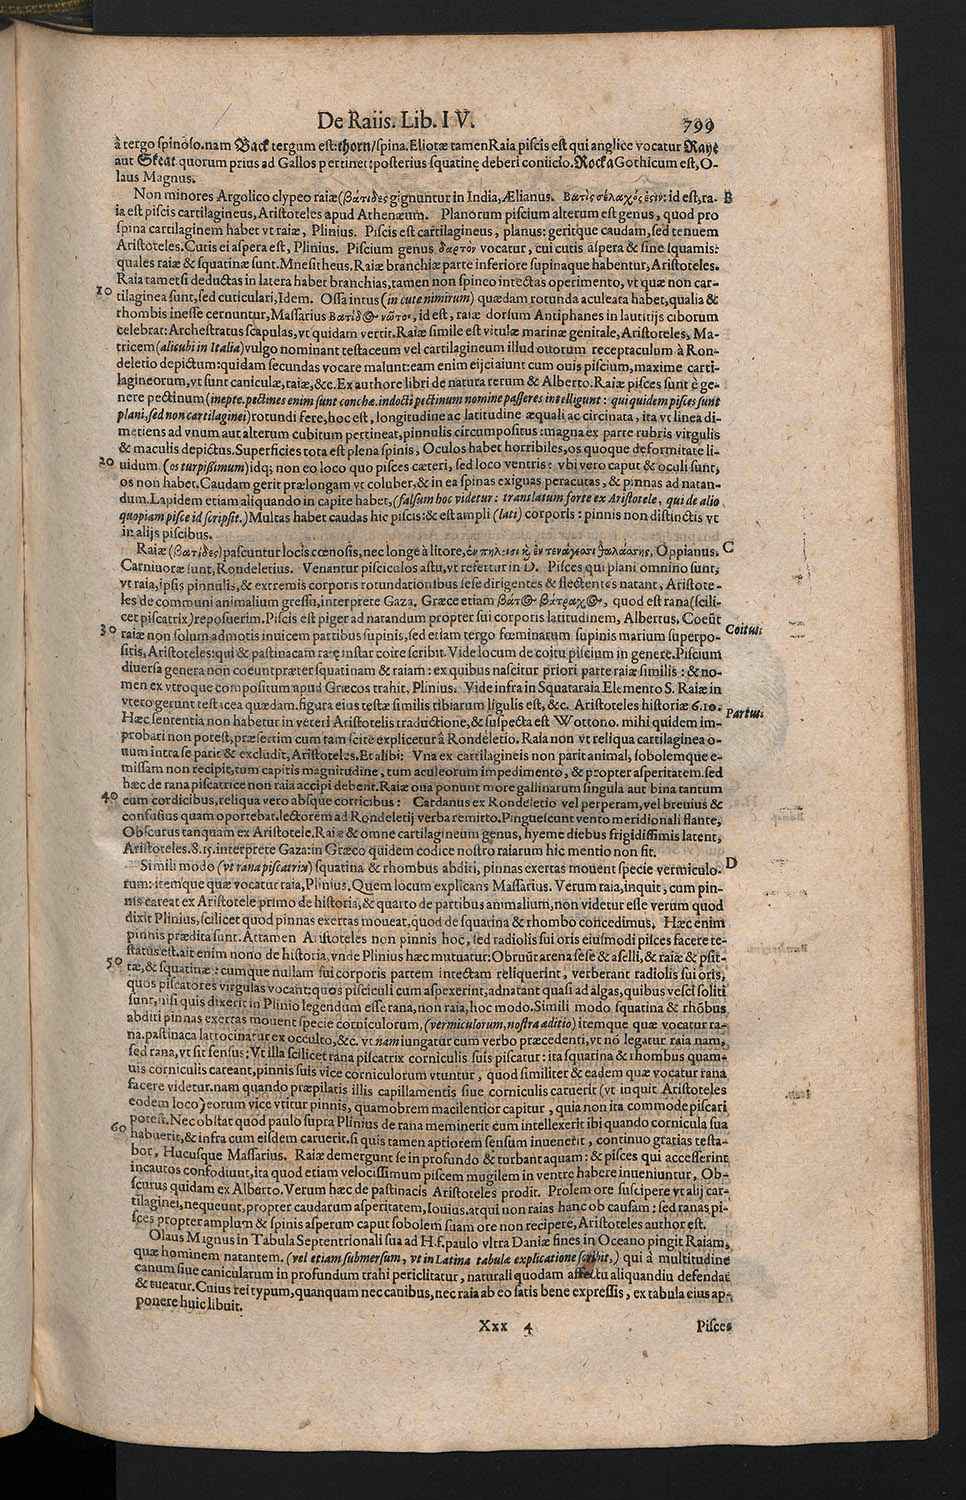 De Raiis. Lib. IV. 799
à tergo spinoso. nam Back tergum est: thorn/spina. Eliotæ tamen Raia piscis est qui anglice vocatur Raye
aut Skeat quorum prius ad Gallos pertinet: posterius squatinę deberi conijcio. Rocka Gothicum est, O-
laus Magnus.
Non minores Argolico clypeo raiæ (βατίδες gignuntur in India, Ælianus. Βατὶς σέλαχός ἐςιν: id est, ra- B
ia est piscis cartilagineus, Aristoteles apud Athenæum. Planorum piscium alterum est genus, quod pro
spina cartilaginem habet vt raiæ, Plinius. Piscis est cartilagineus, planus: geritque caudam, sed tenuem
Aristoteles. Cutis ei aspera est, Plinius. Piscium genus δαρτὸν vocatur, cui cutis aspera & sine squamis:
quales raiæ & squatinæ sunt. Mnesitheus. Raiæ branchiæ parte inferiore supinaque habentur, Aristoteles.
Raia tametsi deductas in latera habet branchias, tamen non spineo intectas operimento, vt quæ non car-
10 tilaginea sunt, sed cuticulari, Idem. Ossa intus (in cute nimirum) quædam rotunda aculeata habet, qualia &
rhombis inesse cernuntur, Massarius Βατίδ@ νῶτον, id est, raiæ dorsum Antiphanes in lautitijs ciborum
celebrat: Archestratus scapulas, vt quidam vertit. Raiæ simile est vitulæ marinæ genitale, Aristoteles, Ma-
tricem (alicubi in Italia) vulgo nominant testaceum vel cartilagineum illud ouorum receptaculum à Ron-
deletio depictum: quidam secundas vocare malunt: eam enim eijciaiunt cum ouis piscium, maxime carti-
lagineorum, vt sunt caniculæ, raiæ, &c. Ex authore libri de natura rerum & Alberto. Raiæ pisces sunt è ge-
nere pectinum (inepte. pectines enim sunt conchæ. indocti pectinum nomine passeres intelligunt: qui quidem pisces sunt
plani, sed non cartilaginei) rotundi fere, hoc est, longitudine ac latitudine æquali ac circinata, ita vt linea di-
metiens ad vnum aut alterum cubitum pertineat, pinnulis circumpositus: magna ex parte rubris virgulis
& maculis depictus. Superficies tota est plena spinis, Oculos habet horribiles, os quoque deformitate li-
20 uidum (os turpissimum) idq; non eo loco quo pisces cæteri, sed loco ventris: vbi vero caput & oculi sunt,
os non habet. Caudam gerit prælongam vt coluber, & in ea spinas exiguas peracutas, & pinnas ad natan-
dum. Lapidem etiam aliquando in capite habet, (falsum hoc videtur: translatum forte ex Aristotele, qui de alio
quopiam pisce id scripsit.) Multas habet caudas hic piscis: & est ampli (lati) corporis: pinnis non distinctis vt
in alijs piscibus.
Raiæ (βατίδες) pascuntur locis cœnosis, nec longe à litore, ἐν πηλοῖσι ϗ ἐν τενάγεσσι θαλάσσης, Oppianus. C
Carniuoræ sunt, Rondeletius. Venantur pisciculos astu, vt refertur in D. Pisces qui plani omnino sunt,
vt raia, ipsis pinnulis, & extremis corporis rotundationibus sese dirigentes & flectentes natant, Aristote-
les de communi animalium gressu, interprete Gaza. Græce etiam βάτ@ βάτραχ@, quod est rana (scili-
cet piscatrix) reposuerim. Piscis est piger ad natandum propter sui corporis latitudinem, Albertus. Coeũt
30 raiæ non solum admotis inuicem partibus supinis, sed etiam tergo fœminarum supinis marium superpo- Coitus.
sitis, Aristoteles: qui & pastinacam raię instar coire scribit. Vide locum de coitu piscium in genere. Piscium
diuersa genera non coeunt præter squatinam & raiam: ex quibus nascitur priori parte raiæ similis: & no-
men ex vtroque compositum apud Græcos trahit. Plinius. Vide infra in Squataraia Elemento S. Raiæ in
vtero gerunt testacea quædam. figura eius testæ similis tibiarum ligulis est, &c. Aristoteles historiæ 6.10. Partus.
Hæc sententia non habetur in veteri Aristotelis traductione, & suspecta est Wottono. mihi quidem im-
probari non potest, præsertim cum tam scite explicetur à Rondeletio. Raia non vt reliqua cartilaginea o-
uum intra se parit & excludit, Aristoteles. Et alibi: Vna ex cartilagineis non parit animal, sobolemque e-
missam non recipit, tum capitis magnitudine, tum aculeorum impedimento, & propter asperitatem. sed
hæc de rana piscatrice non raia accipi debent. Raiæ oua ponunt more gallinarum singula aut bina tantum
40 cum cordicibus, reliqua vero absque corticibus: Cardanus ex Rondeletio vel perperam, vel breuius &
confusius quam oportebat. lectorem ad Rondeletij verba remitto. Pinguescunt vento meridionali flante,
Obscurus tanquam ex Aristotele. Raiæ & omne cartilagineum genus, hyeme diebus frigidissimis latent,
Aristoteles. 8. 15. interprete Gaza: in Græco quidem codice nostro raiarum hic mentio non fit.
Simili modo (vt rana piscatrix) squatina & rhombus abditi, pinnas exertas mouent specie vermiculo- D
rum: itemque quæ vocatur raia, Plinius. Quem locum explicans Massarius. Verum raia, inquit, cum pin-
nis careat ex Aristotele primo de historia, & quarto de partibus animalium, non videtur esse verum quod
dixit Plinius, scilicet quod pinnas exertas moueat, quod de squatina & rhombo concedimus. Hæc enim
pinnis prædita sunt. Attamen Aristoteles non pinnis hoc, sed radiolis sui oris eiusmodi pisces facere te-
status est. ait enim nono de historia, vnde Plinius hæc mutuatur: Obruũt arena sese & aselli, & raiæ & psit-
50 tæ, & squatinæ: cumque nullam sui corporis partem intectam reliquerint, verberant radiolis sui oris,
quos piscatores virgulas vocant: quos pisciculi cum aspexerint, adnatant quasi ad algas, quibus vesci soliti
sunt, nisi quis dixerit in Plinio legendum esse rana, non raia, hoc modo. Simili modo squatina & rhõbus
abditi pinnas exertas mouent specie corniculorum, (vermiculorum, nostra æditio) itemque quæ vocatur ra-
na. pastinaca latrocinatur ex occulto, &c. vt nam iungatur cum verbo præcedenti, vt nõ legatur raia nam,
sed rana, vt sit sensus: Vt illa scilicet rana piscatrix corniculis suis piscatur: ita squatina & rhombus quam-
uis corniculis careant, pinnis suis vice corniculorum vtuntur, quod similiter & eadem quæ vocatur rana
facere videtur. nam quando præpilatis illis capillamentis siue corniculis caruerit (vt inquit Aristoteles
eodem loco) eorum vice vtitur pinnis, quamobrem macilentior capitur, quia non ita commode piscari
60 potest. Nec obstat quod paulo supra Plinius de rana meminerit cum intellexerit ibi quando cornicula sua
habuerit, & infra cum eisdem caruerit. si quis tamen aptiorem sensum inuenerit, continuo gratias testa-
bor, Hucusque Massarius. Raiæ demergunt se in profundo & turbant aquam: & pisces qui accesserint
incautos confodiunt, ita quod etiam velocissimum piscem mugilem in ventre habere inueniuntur, Ob-
scurus quidam ex Alberto. Verum hæc de pastinacis Aristoteles prodit. Prolem ore suscipere vt alij car-
tilaginei, nequeunt, propter caudarum asperitatem, Iouius. atqui non raias hanc ob causam: sed ranas pi-
sces propter amplum & spinis asperum caput sobolem suam ore non recipere, Aristoteles author est.
Olaus Magnus in Tabula Septentrionali sua ad H. f. paulo vltra Daniæ fines in Oceano pingit Raiam,
quæ hominem natantem. (vel etiam submersum, vt in Latina tabulæ explicatione scribit,) qui à multitudine
canum siue canicularum in profundum trahi periclitatur, naturali quodam affectu aliquandiu defendat
& tueatur. Cuius rei typum, quanquam nec canibus, nec raia ab eo satis bene expressis, ex tabula eius ap-
ponere huic libuit.
Xxx 4 Pisces